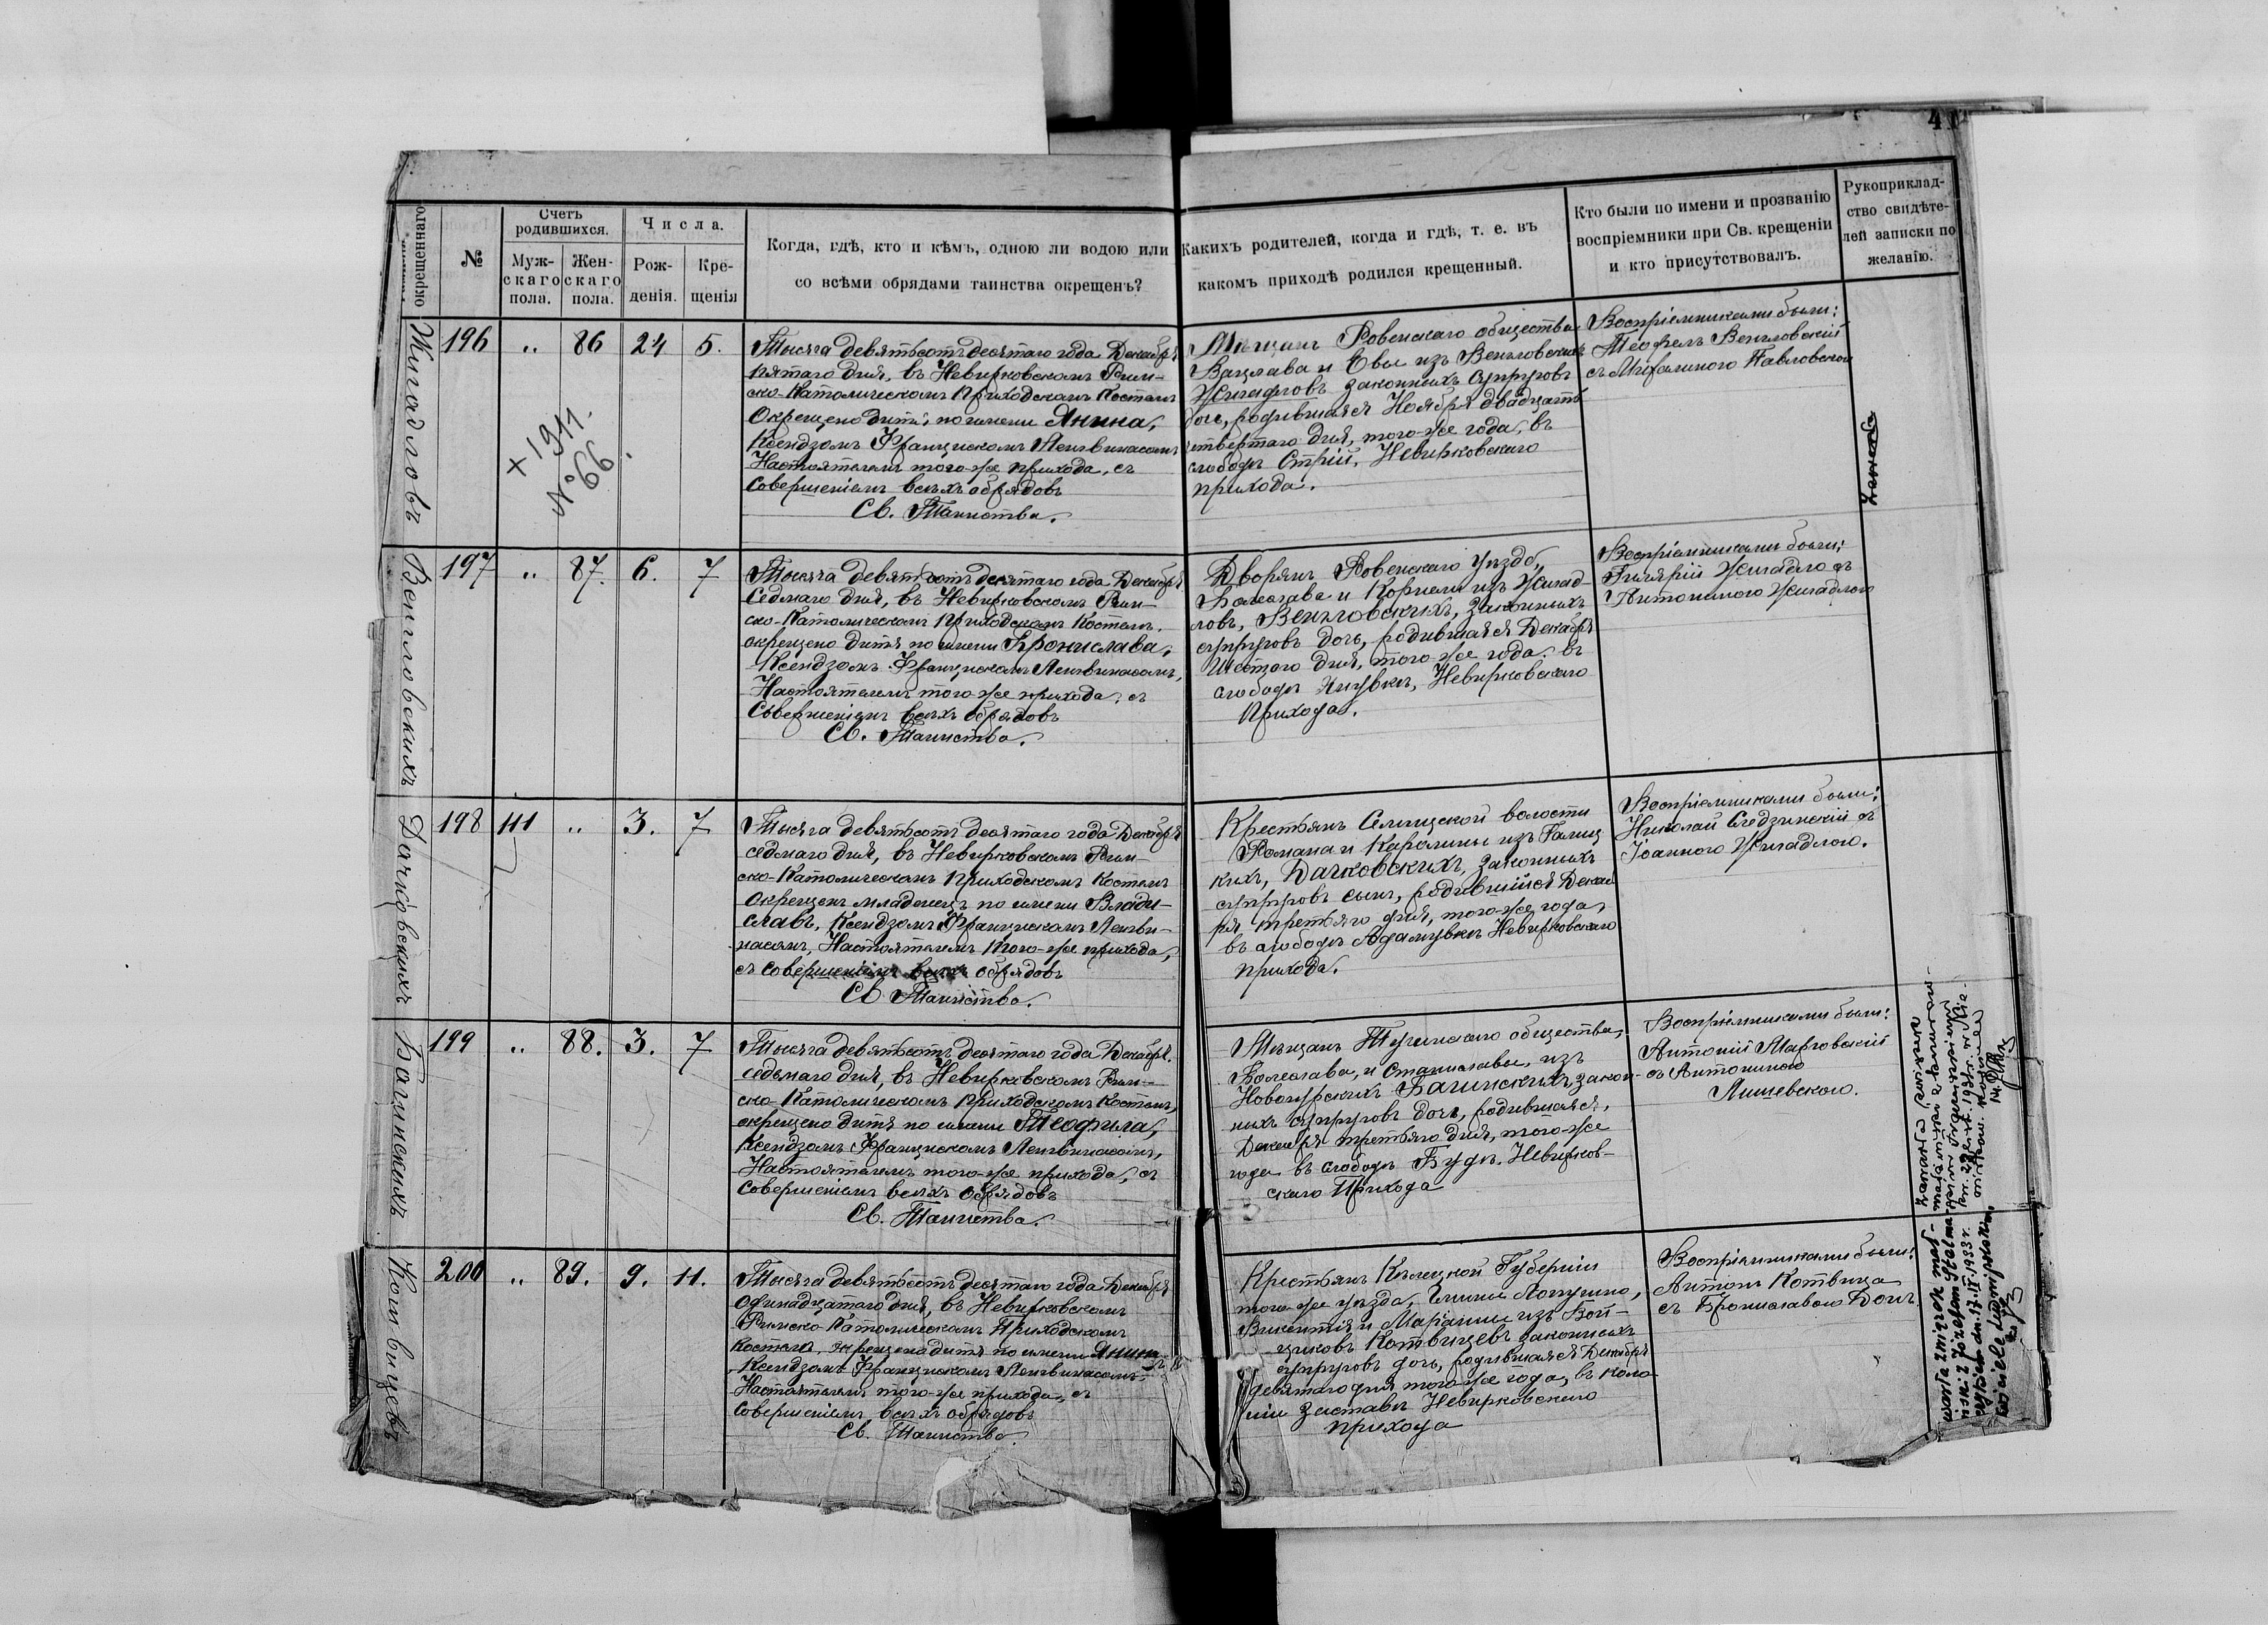 4
окрещеннаго
№
Счетъ родившихся.
Муж-скаго пола.
Жен-скаго пола.
Числа.
Рож-денія.
Кре-щенія
Когда, гдѣ, кто и кѣмъ, одною ли водою или
со всѣми обрядами таинства окрещенъ?
Какихъ родителей, когда и гдѣ, т. е. въ
какомъ приходѣ родился крещенный.
Кто были по имени и прозванію
воспріемники при Св. крещеніи
и кто присутствовалъ.
Рукоприклад-
ство свидѣте-
лей записки по
желанію.
Жигадловъ
196 „ 86 24 5.
+ 1911.
№ 66.
Тысяча девятьсотъ десятаго года Декабря
пятаго дня, въ Невирковскомъ Рим-
ско-Католическомъ Приходскомъ Костелѣ
окрещено дитя по имени Янина,
Ксендзомъ Францискомъ Ленгвинасомъ
Настоятелемъ того-же прихода, съ
совершеніемъ всѣхъ обрядовъ
Св. Таинства.
Мѣщанъ Ровенскаго общества
Вацлава и Евы изъ Венгловскихъ
Жигадловъ законныхъ супруговъ
дочь, родившаяся Ноября двадцать
четвертаго дня, того-же года, въ
слободѣ Стрій, Невирковскаго
прихода.
Воспріемниками были:
Теофилъ Венгловскій
съ Михалиною Павловскою
Венгловскихъ
197 „ 87. 6. 7
Тысяча девятьсотъ десятаго года Декабря
Седмаго дня, въ Невирковскомъ Рим-
ско-Католическомъ Приходскомъ Костелѣ.
окрещено дитя по имени Бронислава,
Ксендзомъ Францискомъ Ленгвинасомъ,
Настоятелемъ того-же прихода, съ
Совершеніемъ всѣхъ обрядовъ
Св. Таинства.
Дворянъ Ровенскаго уѣзда,
Болеслава и Корнели изъ Жигад-
ловъ, Венгловскихъ, законныхъ
супруговъ дочь, родившаяся Декабря
Шестаго дня, того-же года, въ
слободѣ Янувкѣ, Невирковскаго
Прихода.
Воспріемниками были:
Гилярій Жигадло съ
Антониною Жигадлою
Дачковскихъ
198 111 „ 3. 7
Тысяча девятьсотъ десятаго года Декабря
седмаго дня, въ Невирковскомъ Рим-
ско-Католическомъ Приходскомъ Костелѣ
окрещенъ младенецъ по имени Влади-
славъ, Ксендзомъ Францискомъ Ленгви-
насомъ, Настоятелемъ того-же прихода,
съ совершеніемъ всѣхъ обрядовъ
Св. Таинства.
Крестьянъ Селищской волости
Романа и Каролины изъ Галиц
кихъ, Дачковскихъ, законныхъ
супруговъ сынъ, родившійся Декаб
ря третьяго дня, того-же года,
въ слободѣ Адамувкѣ Невирковскаго
прихода.
Воспріемниками были:
Николай Следзинскій съ
Іоанною Жигадлою.
Багинскихъ
199 „ 88. 3. 7
Тысяча девятьсотъ десятаго года Декабря.
седьмаго дня, въ Невирковскомъ Рим-
ско-Католическомъ Приходскомъ Костелѣ,
окрещено дитя по имени Теофила,
Ксендзомъ Францискомъ Ленгвинасомъ,
Настоятелемъ того-же прихода, съ
совершеніемъ всѣхъ обрядовъ
Св. Таинства.
Мѣщанъ Тучинскаго общества,
Болеслава, и Станиславы, изъ
Новогурскихъ Багинскихъ закон-
ныхъ супруговъ дочь, родившаяся,
Декабря третьяго дня, того-же
года въ слободѣ Будѣ, Невирков-
скаго Прихода
Воспріемниками были:
Антоній Марговскій
съ Антониною
Лишевского.
Котвицевъ
200 „ 89. 9. 11.
Тысяча девятьсотъ десятаго года Декабря
одинадцатаго дня, въ Невирковскомъ
Римско-Католическомъ Приходскомъ
Костелѣ, окрещена дитя по имени Янина
Ксендзомъ Францискомъ Ленгвинасомъ
Настоятелемъ того-же прихода, съ
совершеніемъ всѣхъ обрядовъ
Св. Таинства.
Крестьянъ Кѣлецкой Губерніи
того-же уѣзда, Гмины Лопушно,
Викентія и Маріанны изъ Вой-
циковъ Котвицевъ законныхъ
супруговъ дочь, родившаяся Декабря
девятаго дня того-же года, въ коло
ніи Заставѣ Невирковскаго
прихода
Воспріемниками были:
Антонъ Котвица
съ Брониславою Донъ
warła związek mał-
z Józefem
dn. 17.II.1933 r.
zawarła związek